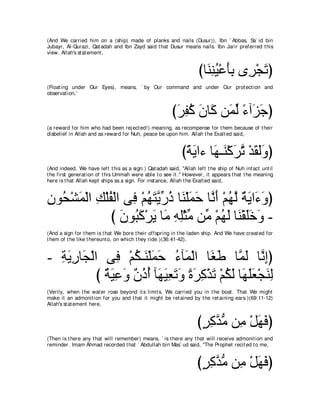 (And We carried him on a (ship) made of planks and nails (Dusur)), Ibn `Abbas, Sa`id bin
Jubayr, Al-Qurazi, Qatadah and Ibn Zayd said that Dusur means nails. Ibn Jarir preferred this
view. Allah's statement,
(تَجْرِى بِأَعْيُنِنَا)
(Floating under Our Eyes), means, `by Our command and under Our protection and
observation,'
(جَزَآءً لِّمَن كَانَ كُفِرَ)
(a reward for him who had been rejected!) meaning, as recompense for them because of their
disbelief in Allah and as reward for Nuh, peace be upon him. Allah the Exalted said,
(وَلَقَدْ تَّرَكْنَـهَا ءايَةً)
(And indeed, We have left this as a sign.) Qatadah said, "Allah left the ship of Nuh intact until
the first generation of this Ummah were able to see it." However, it appears that the meaning
here is that Allah kept ships as a sign. For instance, Allah the Exalted said,
(وَءَايَةٌ لَّهُمْ أَنَّا حَمَلْنَا ذُرِّيَّتَهُمْ فِى الْفُلْكِ الْمَشْحُونِ
- وَخَلَقْنَا لَهُمْ مِّن مِّثْلِهِ مَا يَرْكَبُونَ )
(And a sign for them is that We bore their offspring in the laden ship. And We have created for
them of the like thereunto, on which they ride.)(36:41-42),
(إِنَّا لَمَّا طَغَا الْمَآءُ حَمَلْنَـكُمْ فِى الْجَارِيَةِ -
لِنَجْعَلَهَا لَكُمْ تَذْكِرَةً وَتَعِيَهَآ أُذُنٌ وَعِيَةٌ )
(Verily, when the water rose beyond its limits, We carried you in the boat. That We might
make it an admonition for you and that it might be retained by the retaining ears.)(69:11-12)
Allah's statement here,
(فَهَلْ مِن مُّدَّكِرٍ)
(Then is there any that will remember) means, `is there any that will receive admonition and
reminder. Imam Ahmad recorded that `Abdullah bin Mas`ud said, "The Prophet recited to me,
(فَهَلْ مِن مُّدَّكِرٍ)